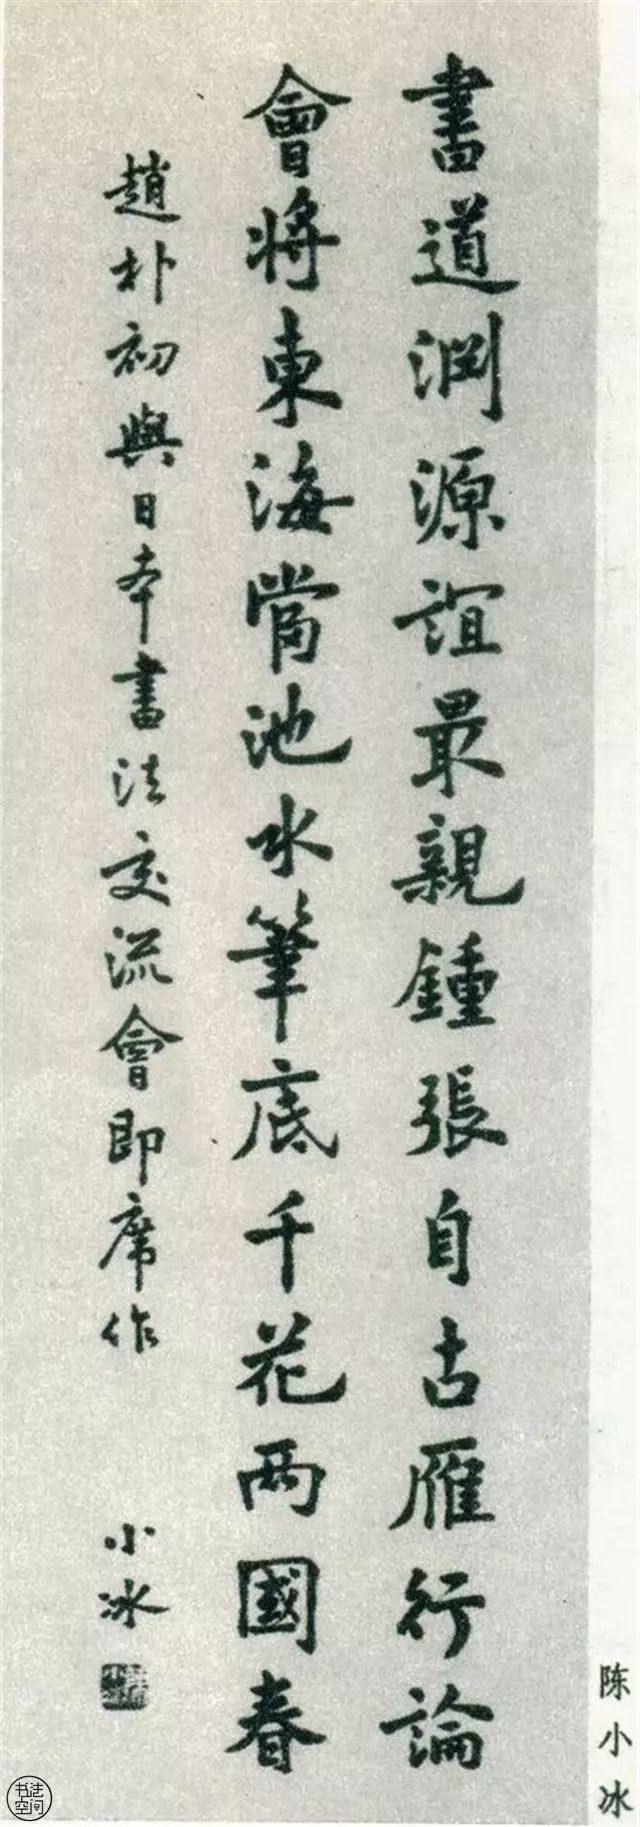 書道渊源誼最親鍾張自古雁行論
會将東海當池水筆底千花两國春
趙朴初與日本書法交流會即席作
小冰
陈小冰
书法空间